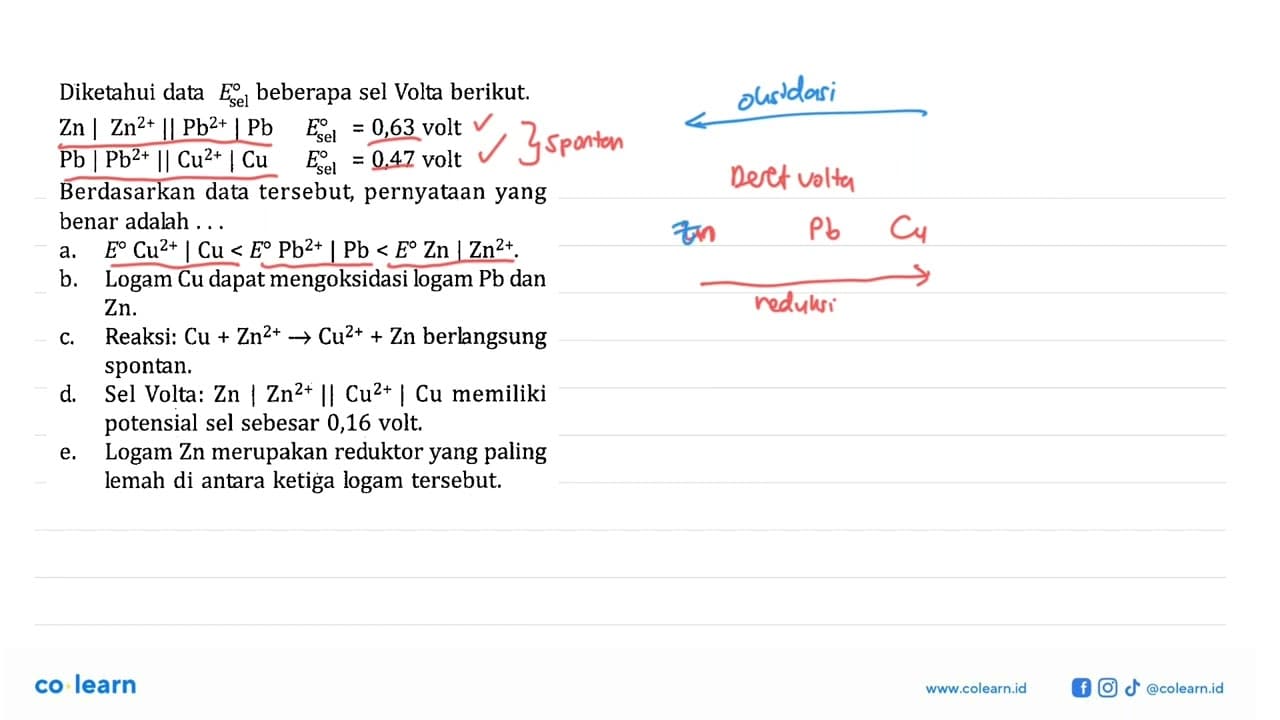 Diketahui data E°sel beberapa sel Volta berikut.
Zn | Zn²⁺ || Pb²⁺ | Pb E°sel = 0,63 volt ✓
Pb | Pb²⁺ || Cu²⁺ | Cu E°sel = 0,47 volt ✓ } spontan
Berdasarkan data tersebut, pernyataan yang
benar adalah . . .
a. E° Cu²⁺ | Cu < E° Pb²⁺ | Pb < E° Zn | Zn²⁺.
b. Logam Cu dapat mengoksidasi logam Pb dan
Zn.
c. Reaksi: Cu + Zn²⁺ → Cu²⁺ + Zn berlangsung
spontan.
d. Sel Volta: Zn | Zn²⁺ || Cu²⁺ | Cu memiliki
potensial sel sebesar 0,16 volt.
e. Logam Zn merupakan reduktor yang paling
lemah di antara ketiga logam tersebut.
oksidasi
Deret volta
Zn Pb Cu
reduksi
co learn
www.colearn.id
@colearn.id